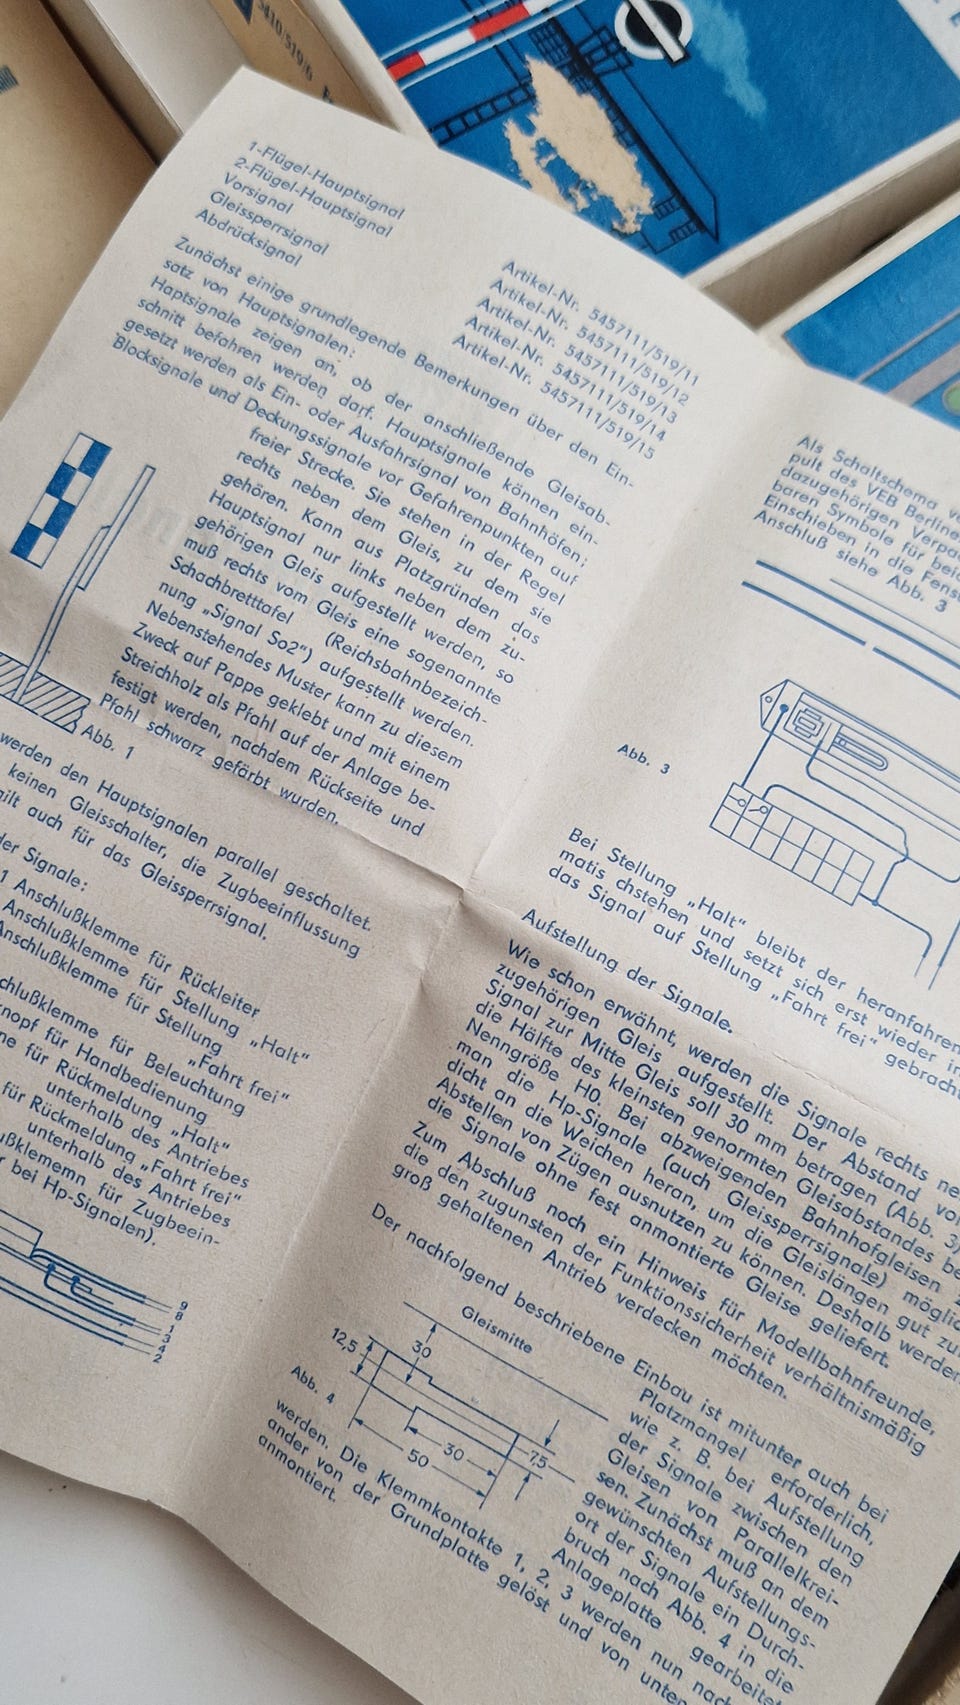 5410/519/6
1-Flügel-Hauptsignal
2-Flügel-Hauptsignal
Vorsignal
Gleissperrsignal
Abdrücksignal
Artikel-Nr. 5457111/519/11
Artikel-Nr. 5457111/519/12
Artikel-Nr. 5457111/519/13
Artikel-Nr. 5457111/519/14
Artikel-Nr. 5457111/519/15
Zunächst einige grundlegende Bemerkungen über den Ein-
satz von Hauptsignalen:
Haptsignale zeigen an, ob der anschließende Gleisab-
schnitt befahren werden darf. Hauptsignale können ein-
gesetzt werden als Ein- oder Ausfahrsignal von Bahnhöfen;
Blocksignale und Deckungssignale vor Gefahrenpunkten auf
freier Strecke. Sie stehen in der Regel
rechts neben dem Gleis, zu dem sie
gehören. Kann aus Platzgründen das
Hauptsignal nur links neben dem zu-
gehörigen Gleis aufgestellt werden, so
muß rechts vom Gleis eine sogenannte
Schachbrettafel (Reichsbahnbezeich-
nung „Signal So2“) aufgestellt werden.
Nebenstehendes Muster kann zu diesem
Zweck auf Pappe geklebt und mit einem
Streichholz als Pfahl auf der Anlage be-
festigt werden, nachdem Rückseite und
Pfahl schwarz gefärbt wurden.
Abb. 1
werden den Hauptsignalen parallel geschaltet.
keinen Gleisschalter, die Zugbeeinflussung
gilt auch für das Gleissperrsignal.
der Signale:
1 Anschlußklemme für Rückleiter
Anschlußklemme für Stellung „Halt“
Anschlußklemme für Stellung
„Fahrt frei“
Anschlußklemme für Beleuchtung
knopf für Handbedienung
für Rückmeldung „Halt“
unterhalb des Antriebes
für Rückmeldung „Fahrt frei“
unterhalb des Antriebes
für Zugbeein-
bei Hp-Signalen).
9
8
1
3
4
2
Als Schaltschema
pult des VEB Berliner
dazugehörigen
baren Symbole für
Einschieben in die
Anschluß siehe Abb. 3
Abb. 3
Bei Stellung „Halt“ bleibt der
matis chstehen und setzt sich erst wieder in
das Signal auf Stellung „Fahrt frei“ gebracht
Aufstellung der Signale.
Wie schon erwähnt, werden die Signale rechts
zugehörigen Gleis aufgestellt. Der Abstand
Signal zur Mitte Gleis soll 30 mm betragen (Abb. 3)
die Hälfte des kleinsten genormten Gleisabstandes
Nenngröße H0. Bei abzweigenden Bahnhofgleisen
man die Hp-Signale (auch Gleissperrsignale)
dicht an die Weichen heran, um die Gleislängen gut
Abstellen von Zügen ausnutzen zu können. Deshalb werden
die Signale ohne fest anmontierte Gleise geliefert.
Zum Abschluß noch ein Hinweis für Modellbahnfreunde,
die den zugunsten der Funktionssicherheit verhältnismäßig
groß gehaltenen Antrieb verdecken möchten.
Der nachfolgend beschriebene Einbau ist mitunter auch bei
Platzmangel erforderlich,
wie z. B. bei Aufstellung
der Signale zwischen den
Gleisen von Parallelkrei-
sen. Zunächst muß an dem
gewünschten Aufstellungs-
ort der Signale ein Durch-
bruch nach Abb. 4 in die
Anlageplatte gearbeitet
Gleismitte
12,5
30
30
50
7,5
Abb. 4
werden. Die Klemmkontakte 1, 2, 3 werden nun
ander von der Grundplatte gelöst und von unten
anmontiert.